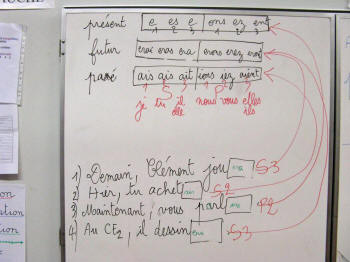 présent e es e ons ez ent
1 2 3 1 2 3
futur erai eras era erons erez eront
passé ais ais ait ions iez aient
1 S 3 1 P 3
je tu il nous vous elles
elle ils
1) Demain, Clément jou era S3
2) Hier, tu achet ais S2
3) Maintenant, vous parl P2
4) Au CE2, il dessin era S3